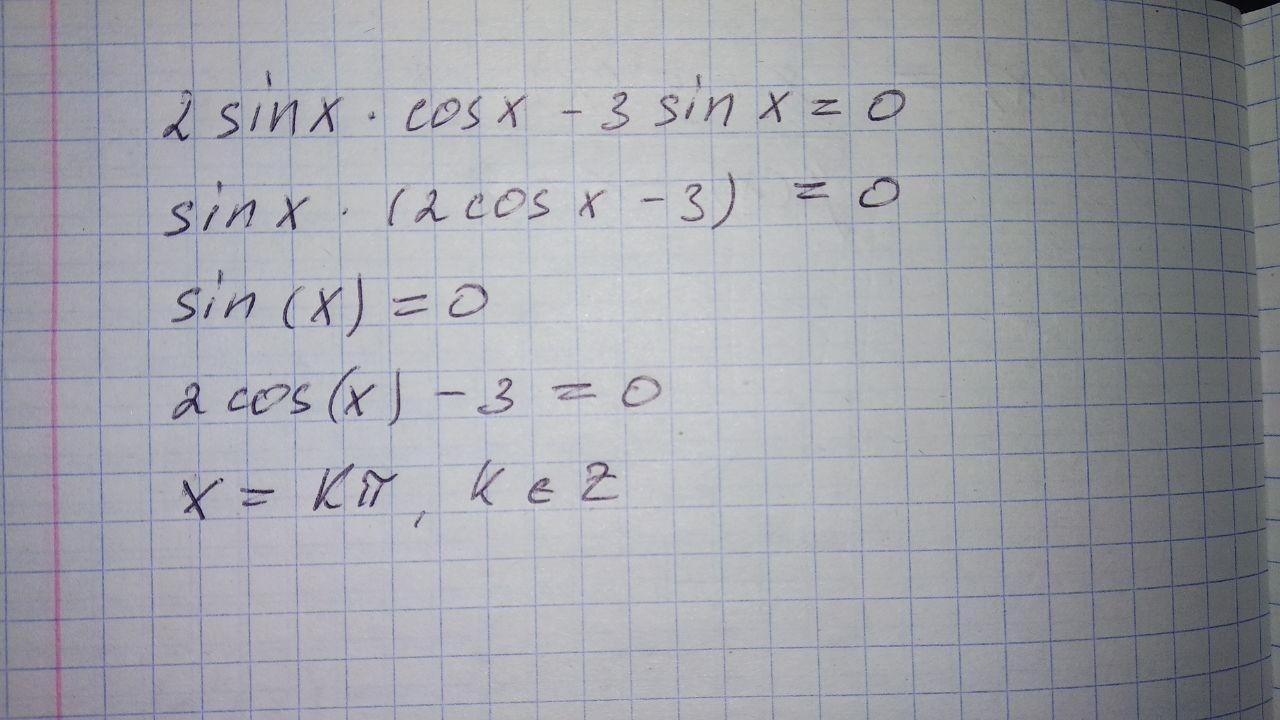 2 sin x · cos x - 3 sin x = 0
sin x · (2 cos x - 3) = 0
sin (x) = 0
2 cos (x) - 3 = 0
x = kπ, k ∈ Z